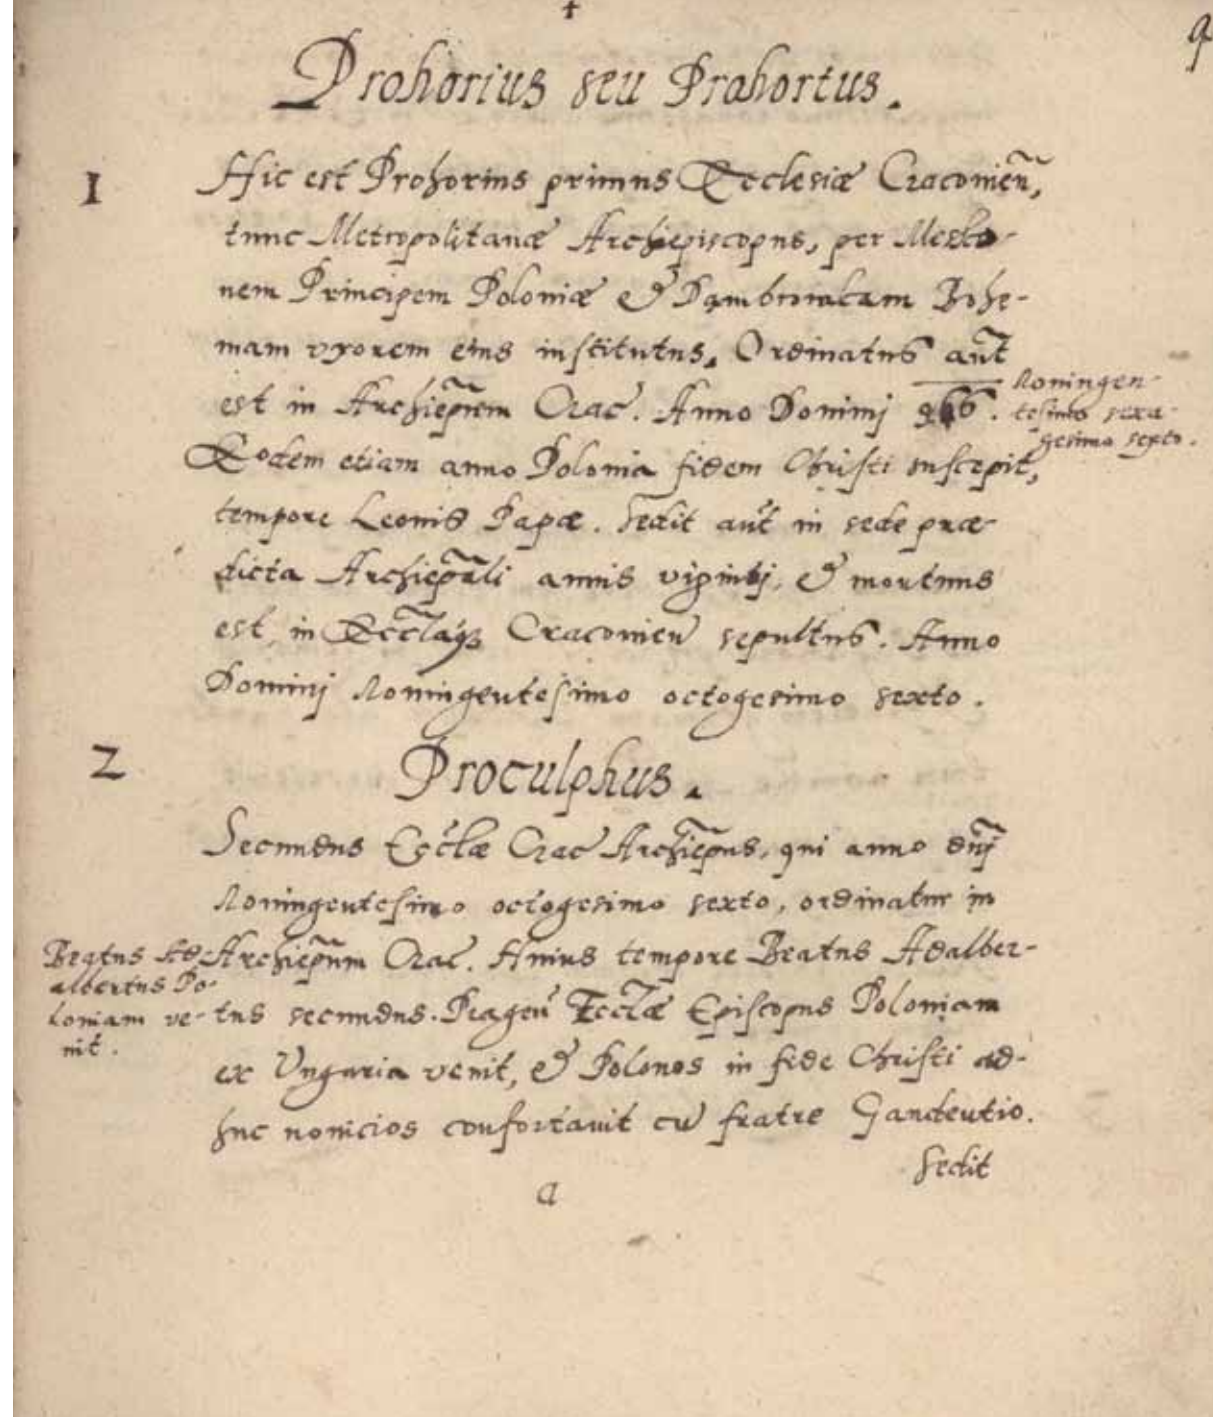 †
9
Prohorius seu Prahortus.
1
Hic est Prohorius primus Ecclesiæ Cracovien̄,
tunc Metropolitanæ Archiepiscopus, per Mesko-
nem Principem Poloniæ & Dambrowkam Bohe-
mam vxorem eius institutus. Ordinatus aut̄
est in Archiep̄rem Crac. Anno Dominj 966.
Noningen-
tesimo sexa-
gesimo sexto.
Eodem etiam anno Polonia fidem Christi suscepit,
tempore Leonis Papæ. Sedit aut̄ in sede præ-
dicta Archiep̄ali annis vigintj, & mortuus
est, in Eccl̄aq3 Cracovien̄ sepultus. Anno
Dominj Noningentesimo octogesimo sexto.
2
Proculphus.
Secundus Eccl̄æ Crac Archiep̄us, qui anno dn̄j
Noningentesimo octogesimo sexto, ordinatur in
Archiep̄um Crac. Huius tempore Beatus Adalber-
tus secundus. Pragen̄ Eccl̄æ Episcopus Poloniam
ex Vngaria venit, & Polonos in fide Christi ad-
huc nouicios confortauit cū fratre Gaudentio.
Beatus Ad-
albertus Po-
loniam ve-
nit.
Sedit
a